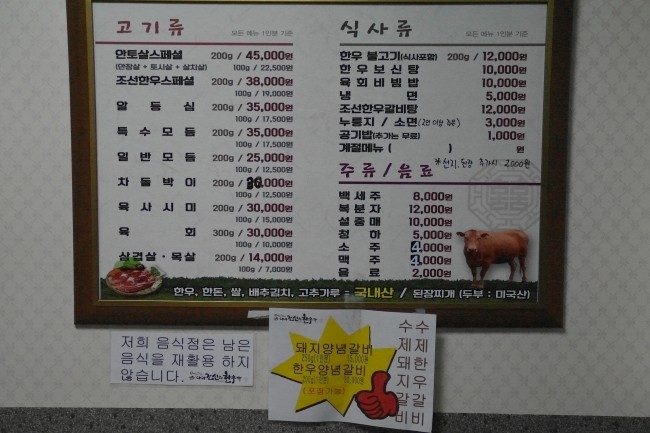 고기류 모든 메뉴 1인분 기준
안토살스페셜 200g / 45,000원
(안창살 + 토시살 + 살치살) 100g / 22,500원
조선한우스페셜 200g / 38,000원
100g / 19,000원
알등심 200g / 35,000원
100g / 17,500원
특수모듬 200g / 35,000원
100g / 17,500원
일반모듬 200g / 25,000원
100g / 12,500원
차돌박이 200g / ,000원
100g / 12,500원
육사시미 200g / 30,000원
100g / 15,000원
육회 300g / 30,000원
100g / 10,000원
삼겹살·목살 200g / 14,000원
100g / 7,000원
식사류 모든 메뉴 1인분 기준
한우 불고기(식사포함) 200g / 12,000원
한우보신탕 10,000원
육회비빔밥 10,000원
냉면 5,000원
조선한우갈비탕 12,000원
누룽지 / 소면 (2인 이상 주문) 3,000원
공기밥(추가는 무료) 1,000원
계절메뉴 ( ) 원
*선지, 된장 추가시 2000원
주류/음료
백세주 8,000원
복분자 12,000원
설중매 10,000원
청하 5,000원
소주 4,000원
맥주 4,000원
음료 2,000원
한우, 한돈, 쌀, 배추김치, 고추가루 = 국내산 / 된장찌개 (두부 : 미국산)
저희 음식점은 남은
음식을 재활용 하지
않습니다.
돼지양념갈비
한우양념갈비
(포장가능)
수제한우갈비
수제돼지갈비